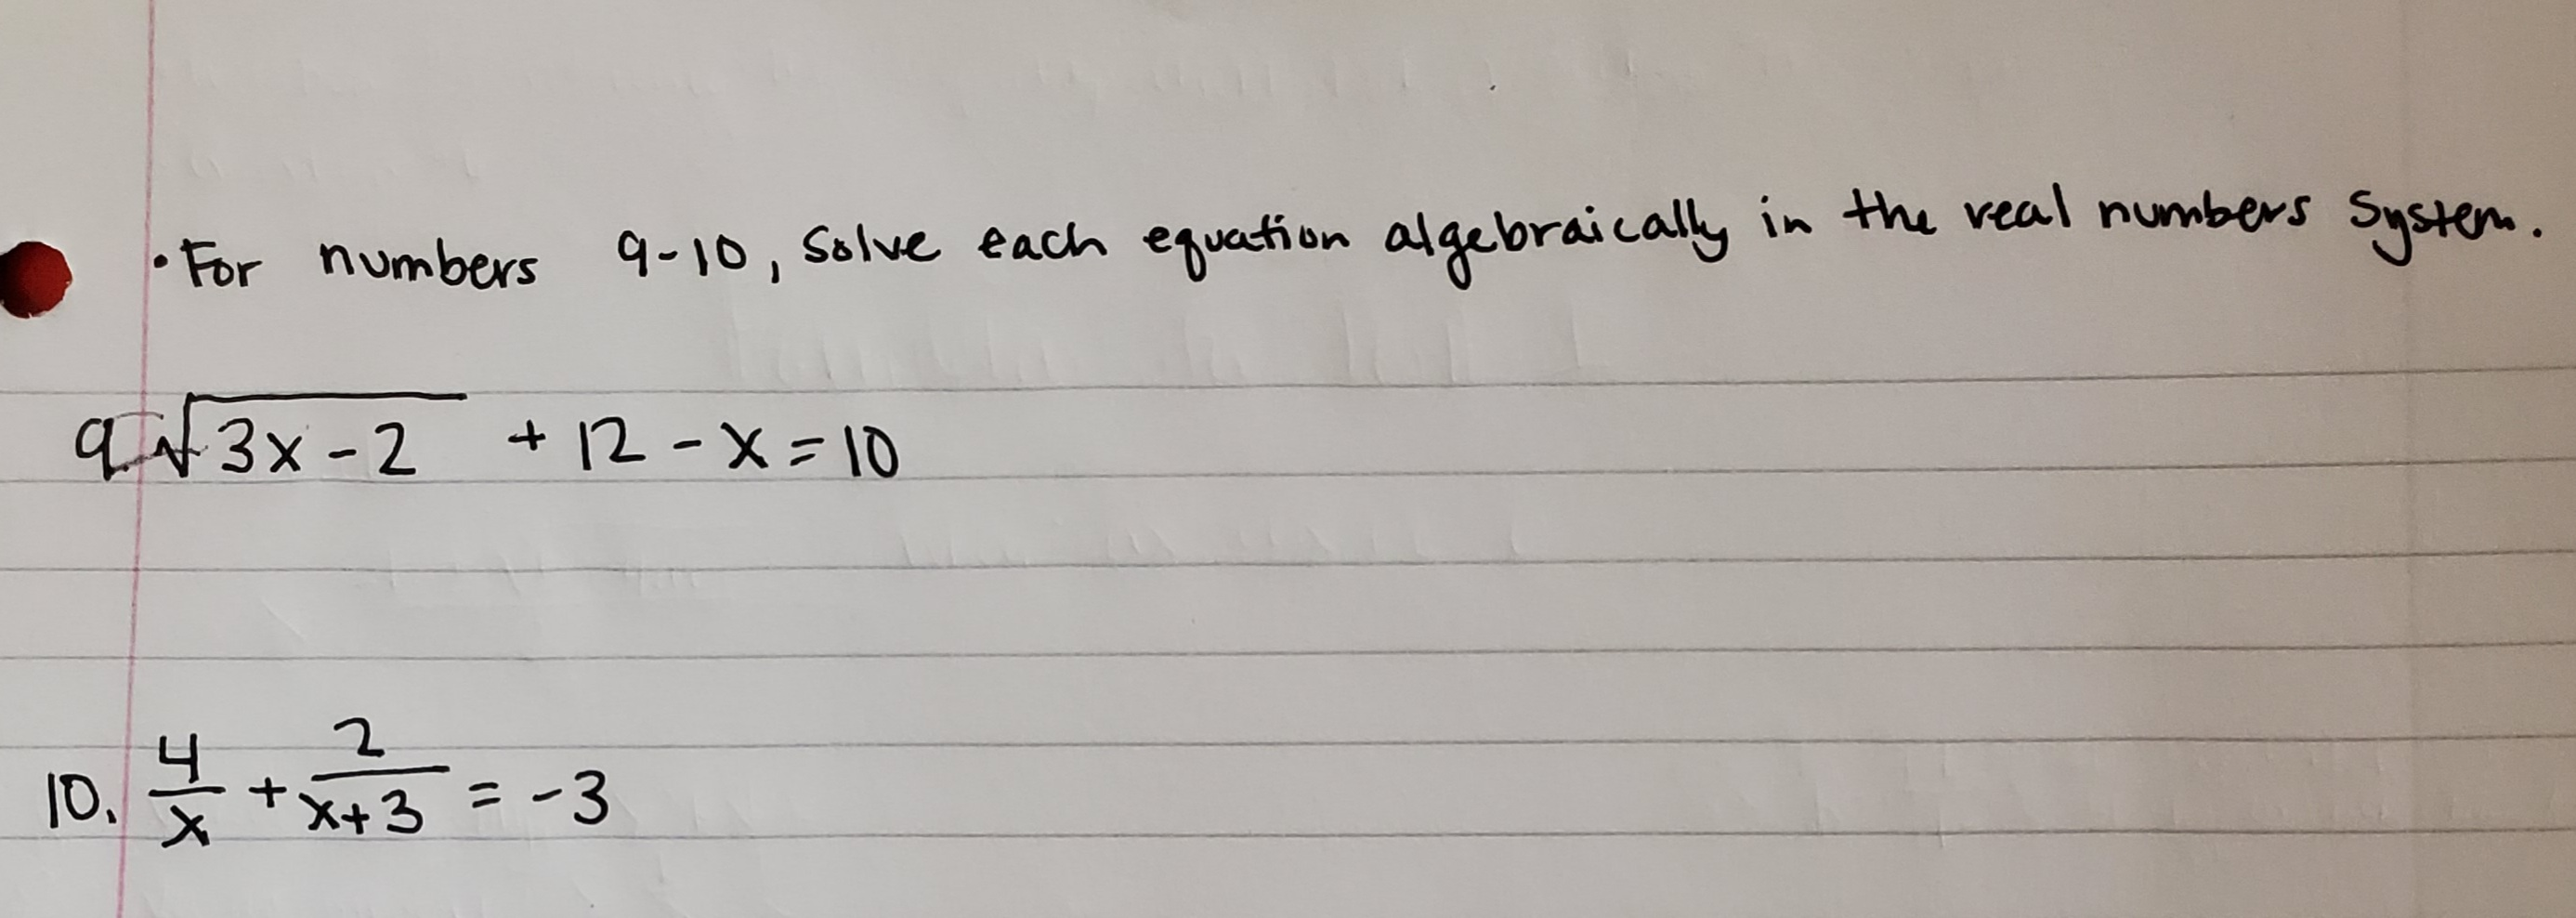 • For numbers 9-10, solve each equation algebraically in the real numbers system.
9. √(3x - 2) + 12 - x = 10
10. 4/x + 2/(x+3) = -3